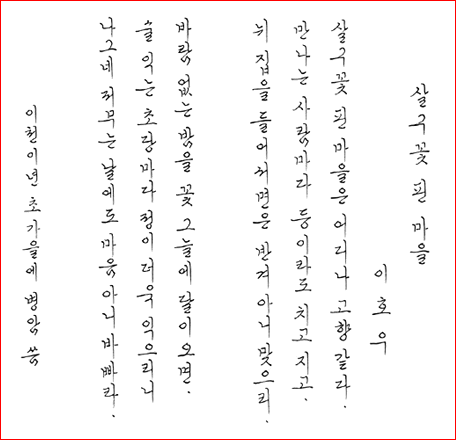 살구꽃 핀 마을
이호우
살구꽃 핀 마을은 어디나 고향 같다.
만나는 사람마다 등이라도 치고 지고.
뉘 집을 들어서면은 반겨 아니 맞으리.
바람 없는 밤을 꽃 그늘에 달이 오면.
술 익는 초당마다 정이 더욱 익으리니
나그네 저무는 날에도 마음 아니 바빠라.
이천이년 초가을에 병암 씀